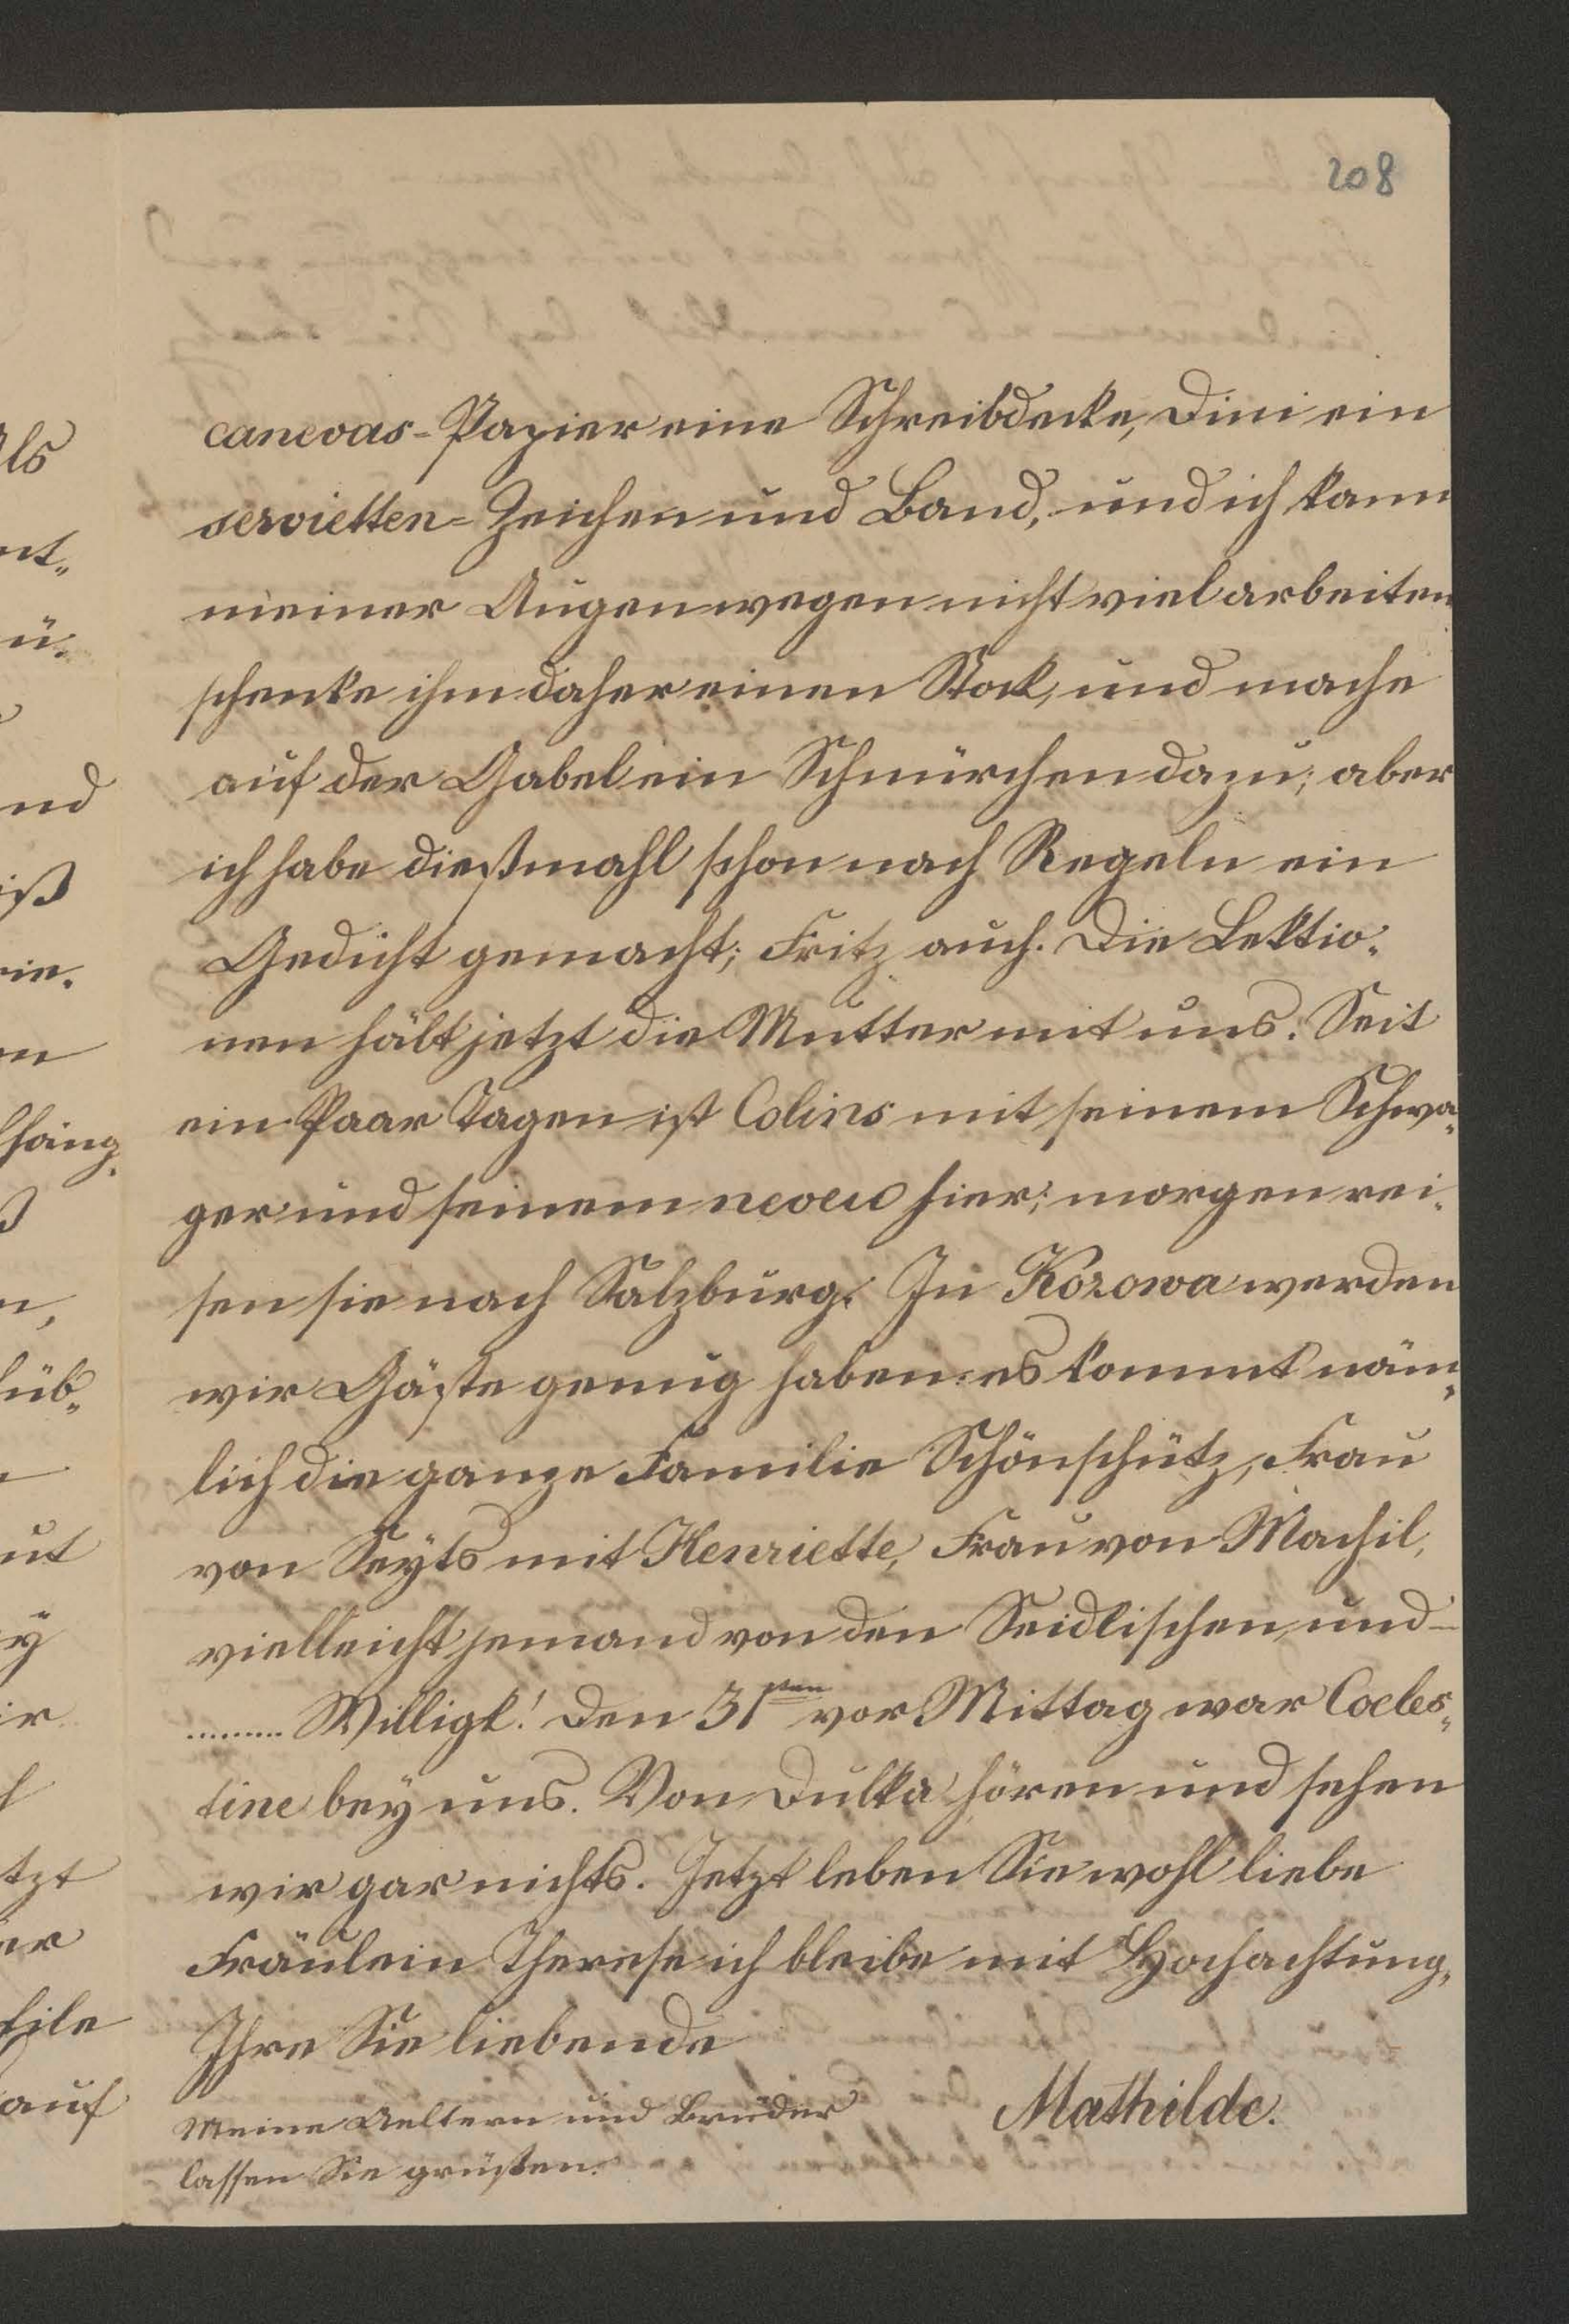 208
canevas-Papier eine Schreibdecke, Dini ein
servietten-Zeichen und Band, und ich kann
meiner Augen wegen nicht viel arbeiten
schenke ihm daher einen Stock, und mache
auf der Gabel ein Schnürchen dazu; aber
ich habe dießmahl schon nach Regeln ein
Gedicht gemacht; Fritz auch. Die Lektio-
nen hält jetzt die Mutter mit uns. Seit
ein Paar Tagen ist Colins mit seinem Schwa-
ger und seinem neveu hier; morgen rei-
sen sie nach Salzburg. In Kozowa werden
wir Gäste genug haben: es kommt näm-
lich die ganze Familie Schönschütz, Frau
von Seyts mit Henriette, Frau von Machil,
vielleicht jemand von den Seidlischen und –
......... Willigk! Den 31sten vor Mittag war Coeles-
tine bey uns. Von Dulka hören und sehen
wir gar nichts. Jetzt leben Sie wohl liebe
Fräulein Therese ich bleibe mit Hochachtung,
Ihre Sie liebende
Mathilde.
Meine Aeltern und Brüder
lassen Sie grüßen.